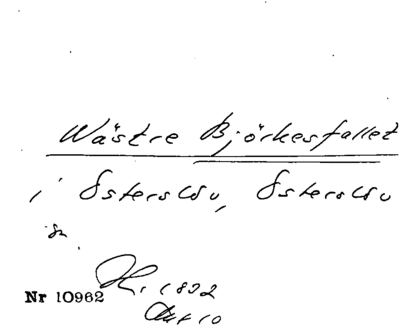 Wästre Björkesfallet
i Österslöv, Österslöv
sn.
Nr 10962 H. 1892
Akt 10